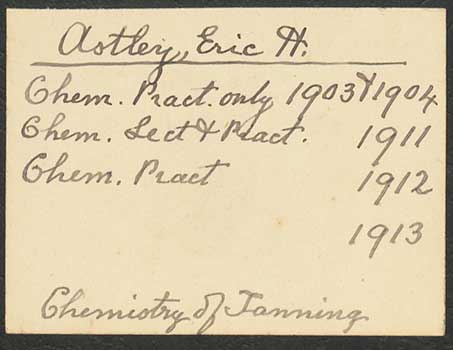 Astley, Eric H.
Chem. Pract. only 1903 & 1904
Chem. Lect & Pract. 1911
Chem. Pract 1912
1913
Chemistry of Tanning